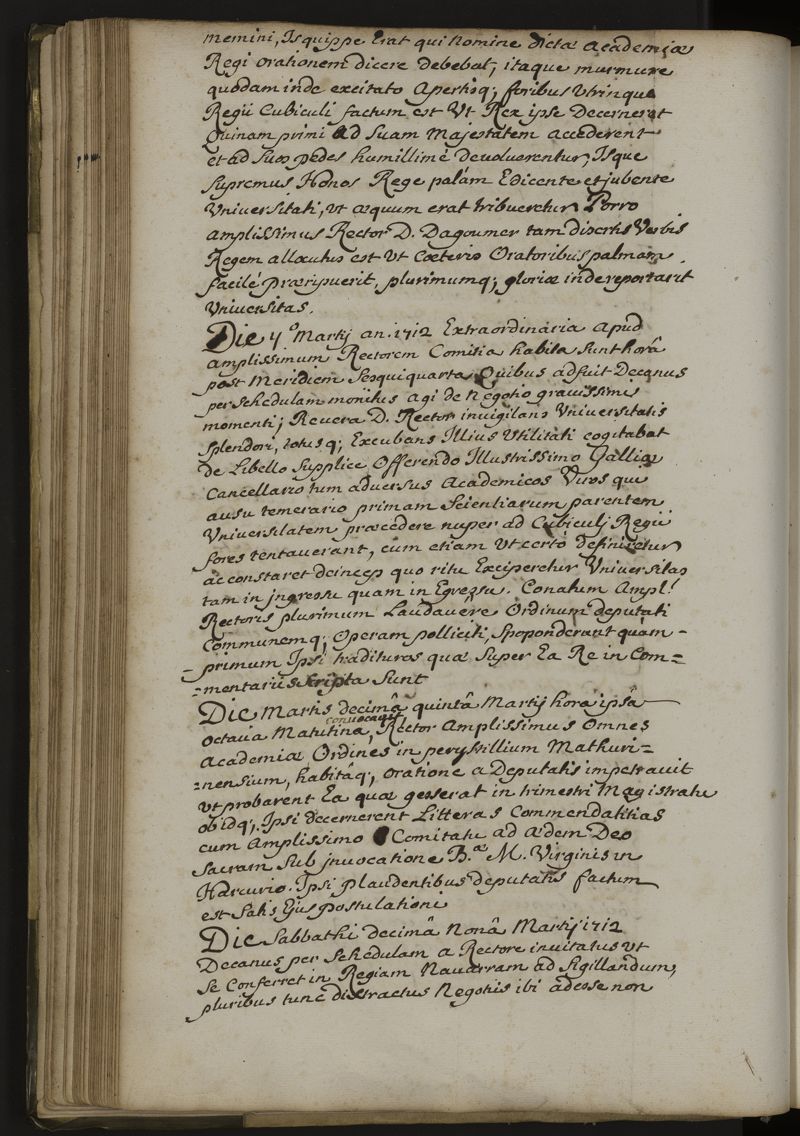 memini, Is quippe Erat qui nomine dictæ academiæ
Regi orationem dicere debebat, itaque murmure
quodam inde excitato Apertisq; foribus Utrinque
Regii Cubiculi factum est Ut Rex ipse Decerneret
Quinam primi Ad Suam Majestatem accederent
et ad Suos pedes humillimè Devolverentur, Isque
Supremus Honos Rege palám Edicente et jubente
Universitati, ut æquum erat tribueretur Porro
amplissimus Rector D. Dagoumer tam disertis Verbis
Regem allocutus est Ut Cæteris Oratoribus palmam
facilé præripuerit, plurimumq; gloriæ inde reportarit
Universitas.
Die 4º Martij an. 1712 Extraordinaria apud
amplissimum Rectorem Comitia habita Sunt horâ
post Meridiem Sesquiquarta Quibus adfuit Decanus
per Schedulam monitus agi de Negotio gravissimi
momenti; Revera D. Rector invigilans Universitatis
Splendori, totusq; Excubans Illius Utilitati cogitabat
de Libello Supplice Offerendo Illustrissimo Galliæ
Cancellario tum adversus academicos Viros qui
ausu temerario primam Scientiarum parentem
Universitatem præcedere nuper ad Cubiculj Regii
fores tentaverant, cum etiam Ut certò definiretur
ac constaret deinceps quo ritu Exciperetur Universitas
tam in jngressu quam in Egressu. Conatum Ampl.!
Rectoris plurimum Laudavêre Ordinum deputati
Communemq; Operam polliciti, Spoponderunt quàm-
-primum Ipsi tradituros quæ Super Ea Re in Com=
=mentariis Scripta Sunt
Die Martis decimâ quintâ Martij hora ipsâ
octava Matutina, convocavit Rector Amplissimus Omnes
Academiæ Ordines in perystillium Mathuri=
=nensium, habitâq; oratione a Deputatis impetravit
ut probarent Ea quæ gesserat in trimestri Magistratu
ob idq;. Ipsi decernerent Litteras Commendatitias
cum Amplissimo Comitatu ad ædem Deo
Sacram Sub jnvocatione B.æ M. Virginis in
Harcurio. Ipsi plaudentibus deputatis factum
est Satis Ejus postulationi
Die Sabbathi decimâ Nonâ Martij 1712
Decanus per Schedulam a Rectore invitatus ut
Se Conferret in Regiam Navarram ad Sigillandum,
pluribus tunc distractus Negotiis ibi adesse non